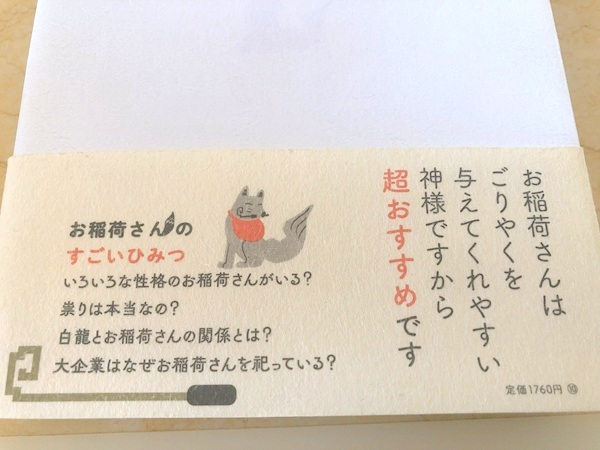 お稲荷さんは
ごりやくを
与えてくれやすい
神様ですから
超おすすめです
お稲荷さんの
すごいひみつ
いろいろな性格のお稲荷さんがいる?
祟りは本当なの?
白龍とお稲荷さんの関係とは?
大企業はなぜお稲荷さんを祀っている?
定価1760円 ⑩